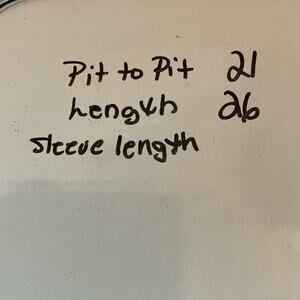 Pit to Pit 21
Length 26
Sleeve length